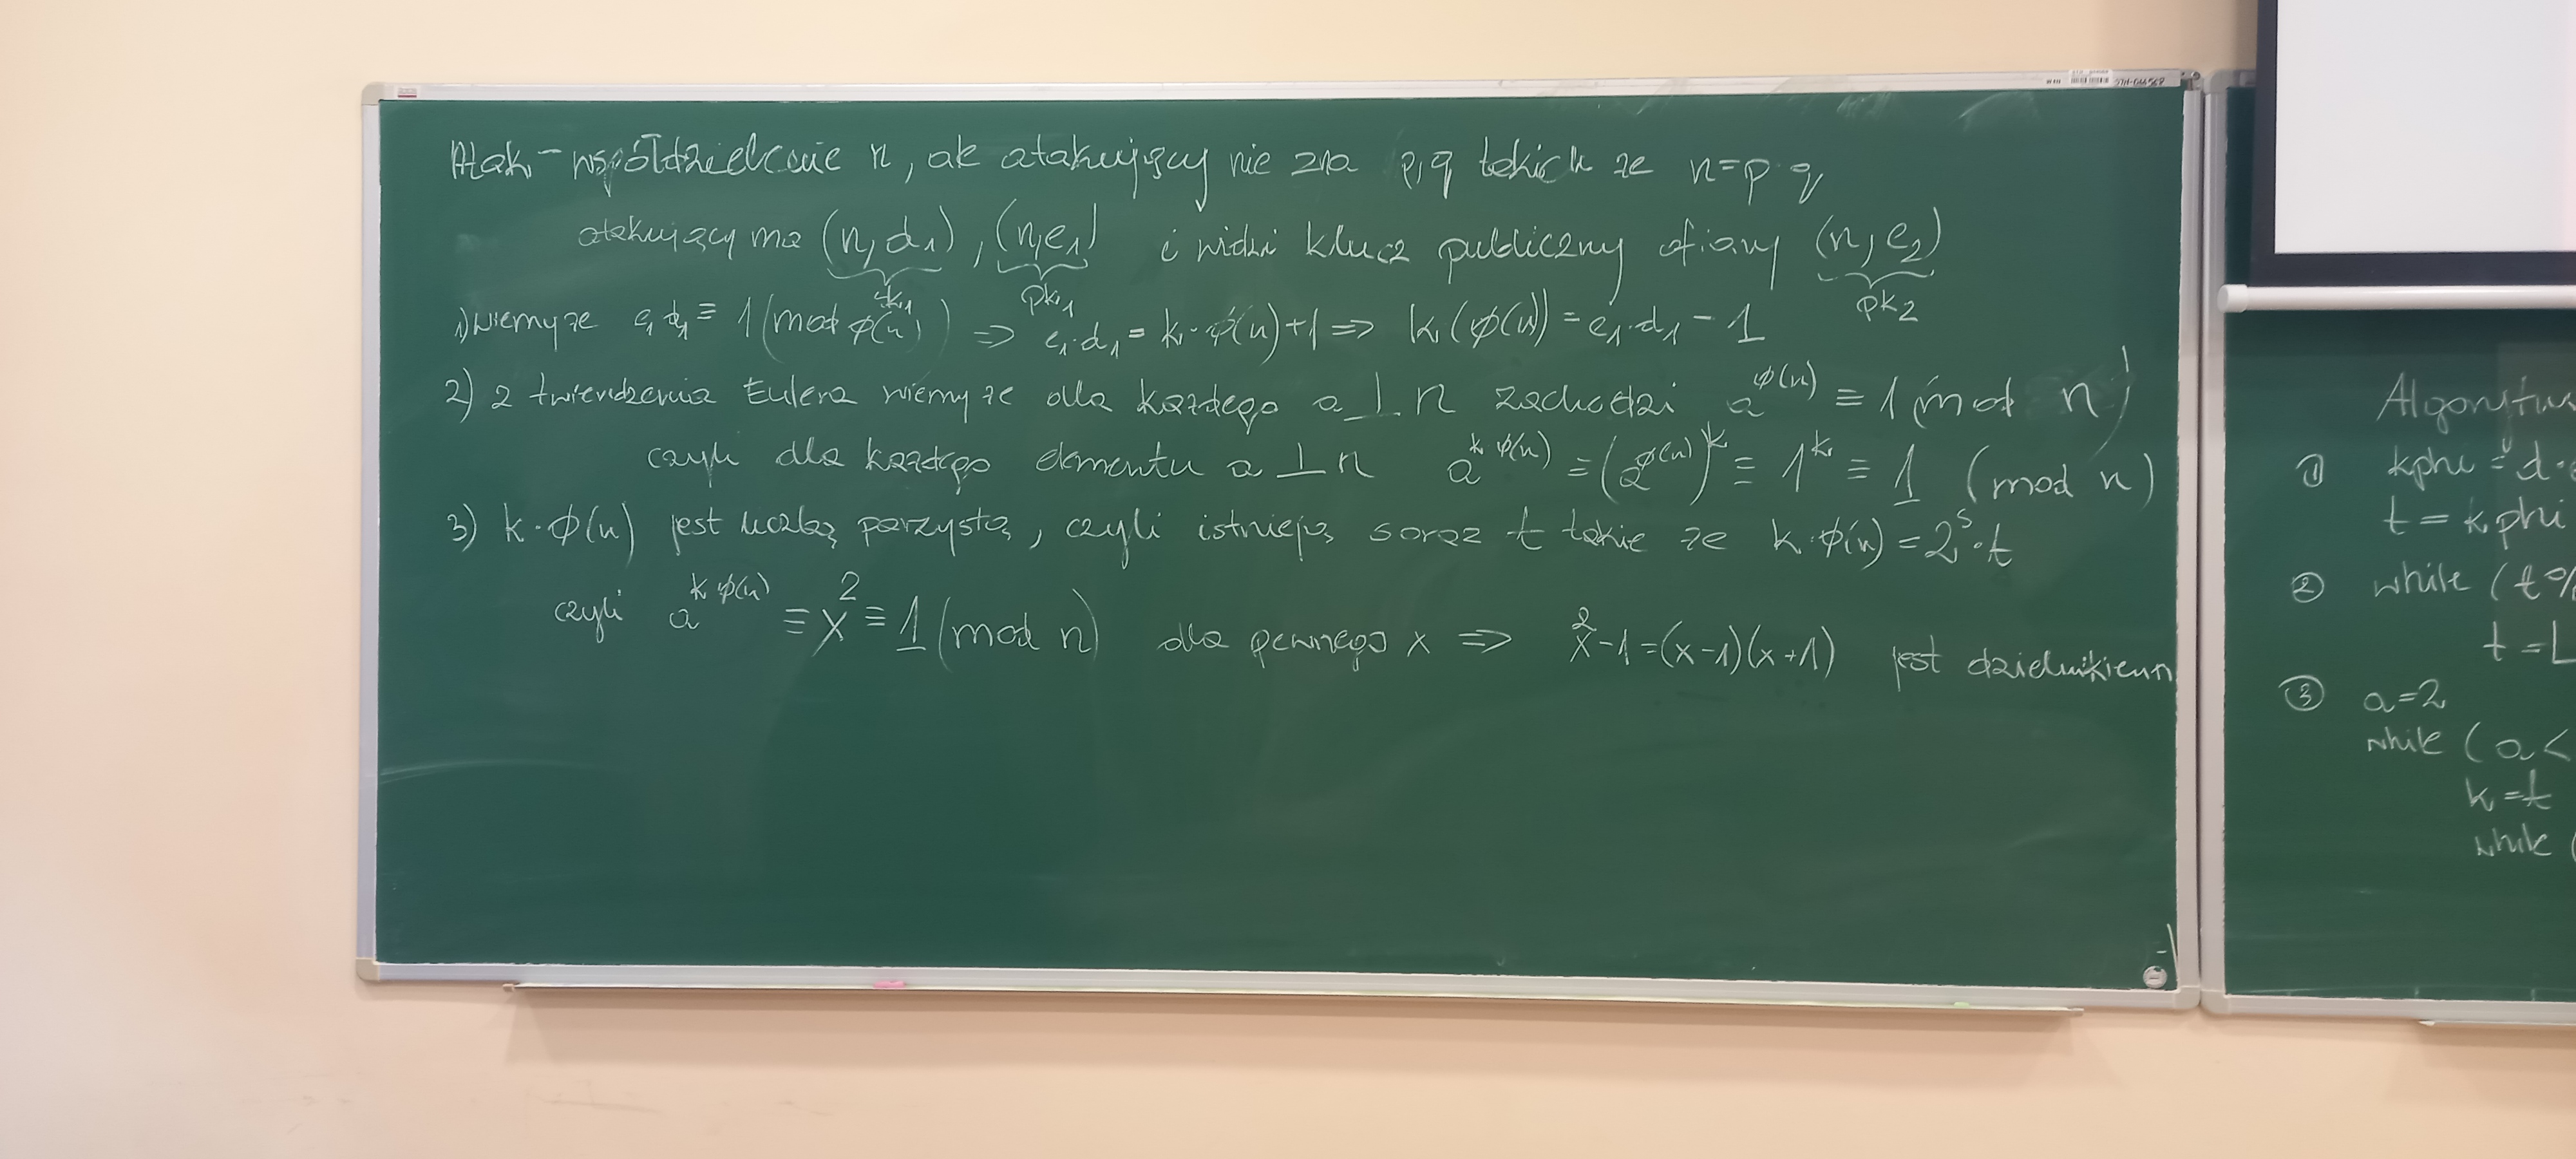 Atak - współdzielenie n, ale atakujący nie zna p, q takich że n=p·q
atakujący ma (n, d₁), (n, e₁) i widzi klucz publiczny ofiary (n, e₂)
sk₁ pk₁ pk₂
1) wiemy że e₁d₁ ≡ 1 (mod φ(n)) ⇒ e₁·d₁ = k·φ(n)+1 ⇒ k(φ(n)) = e₁·d₁ - 1
2) z twierdzenia Eulera wiemy że dla każdego a ⊥ n zachodzi a^φ(n) ≡ 1 (mod n)
czyli dla każdego elementu a ⊥ n a^k·φ(n) ≡ (a^φ(n))^k ≡ 1^k ≡ 1 (mod n)
3) k·φ(n) jest liczbą parzystą, czyli istnieją s oraz t takie że k·φ(n) = 2^s·t
czyli a^k·φ(n) ≡ x² ≡ 1 (mod n) dla pewnego x ⇒ x²-1=(x-1)(x+1) jest dzielnikiem n
Algorytm
① kphi = d·e
t = kphi
② while (t%
t = L
③ a=2
while (a<
k=t
while (